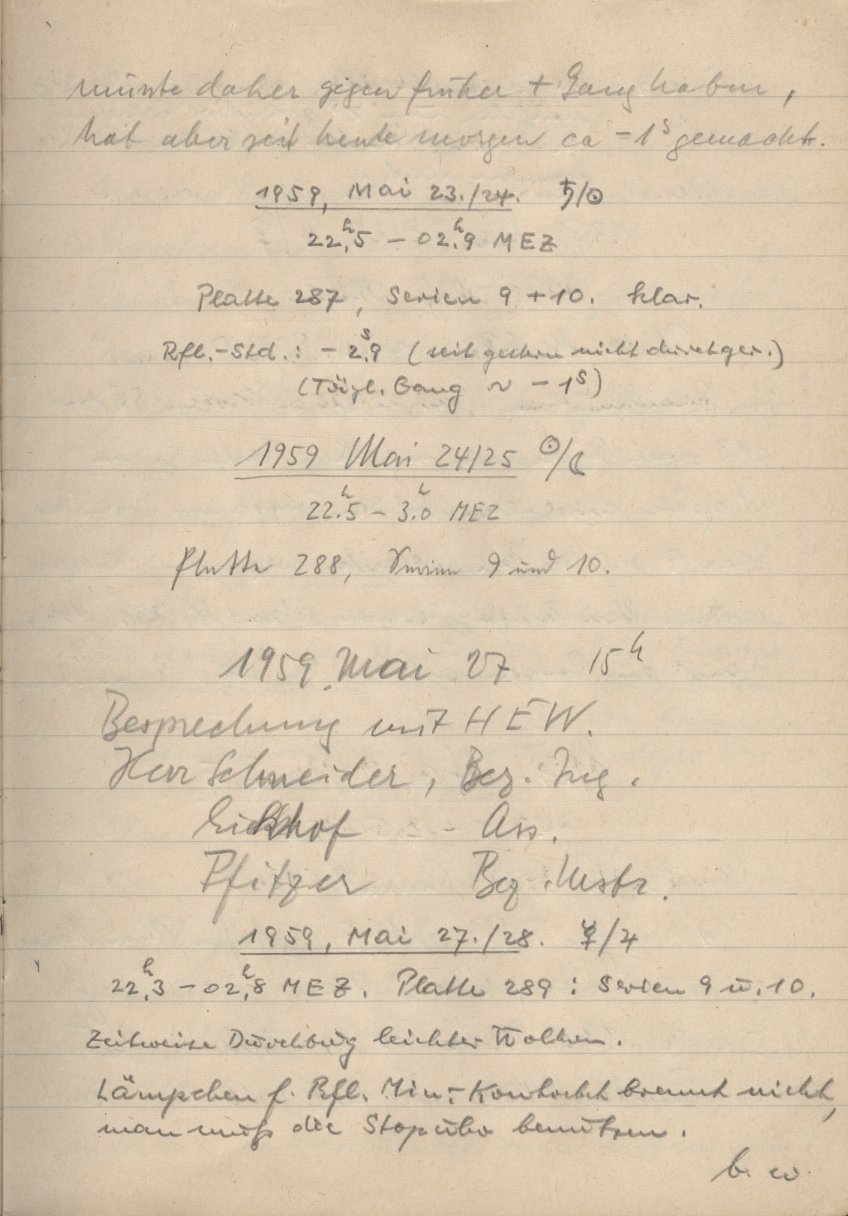 müsste daher gegen früher + Gang haben,
hat aber seit heute morgen ca -1ˢ gemacht.
1959, Mai 23./24. ♄/☉
22ʰ,5 – 02ʰ,9 MEZ
Platte 287, Serien 9 + 10. klar.
Rfl.-Std.: – 2ˢ,9 (seit gestern nicht durchger.)
(Tägl. Gang ~ – 1ˢ)
1959 Mai 24/25 ☉/☾
22ʰ.5 – 3ʰ.0 MEZ
Platte 288, Serien 9 und 10.
1959 Mai 27 15ʰ
Besprechung mit HEW.
Herr Schneider, Bez. Ing.
Eickhof - Ass.
Pfitzer Bez. Mstr.
1959, Mai 27./28. ☿/♃
22ʰ,3 – 02ʰ,8 MEZ. Platte 289: Serien 9 u. 10.
Zeitweise Durchzug leichter Wolken.
Lämpchen f. Rfl. Min.-Kontakt brennt nicht,
man muß die Stopuhr benutzen.
b. w.